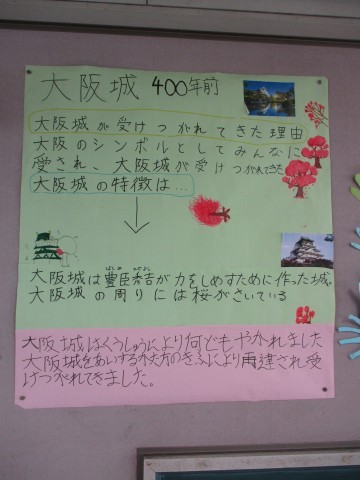 大阪城 400年前
大阪城が受けつがれてきた理由
大阪のシンボルとしてみんなに
愛され、大阪城が受けつがれてきた
大阪城の特徴は…
大阪城は豊臣秀吉が力をしめすために作った城。
大阪城の周りには桜がさいている
大阪城はくうしゅうにより何どもやかれました
大阪城をあいする大方のきふにより再違され受
けつがれてきました。